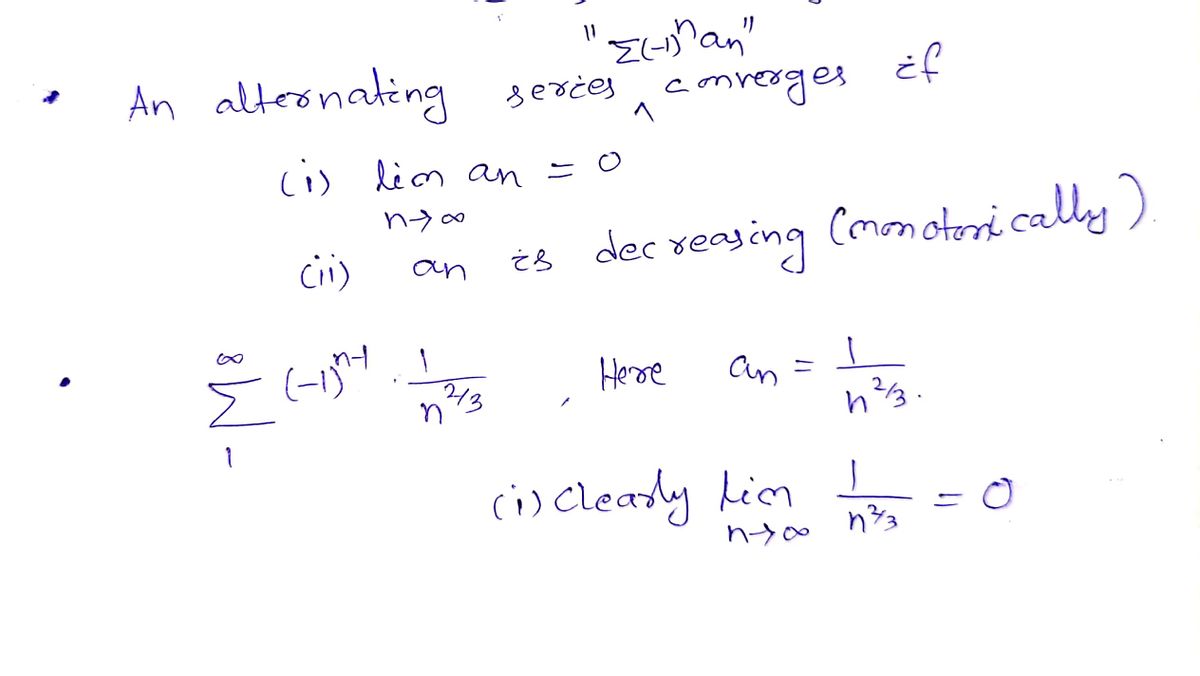 "Σ(-1)ⁿ an"
• An alternating series ^ converges if
(i) lim an = 0
n→∞
(ii) an is decreasing (monotonically).
• ∞ Σ 1 (-1)ⁿ⁻¹ · 1/n^2/3 , Here an = 1/n^2/3.
(i) Clearly lim n→∞ 1/n^2/3 = 0